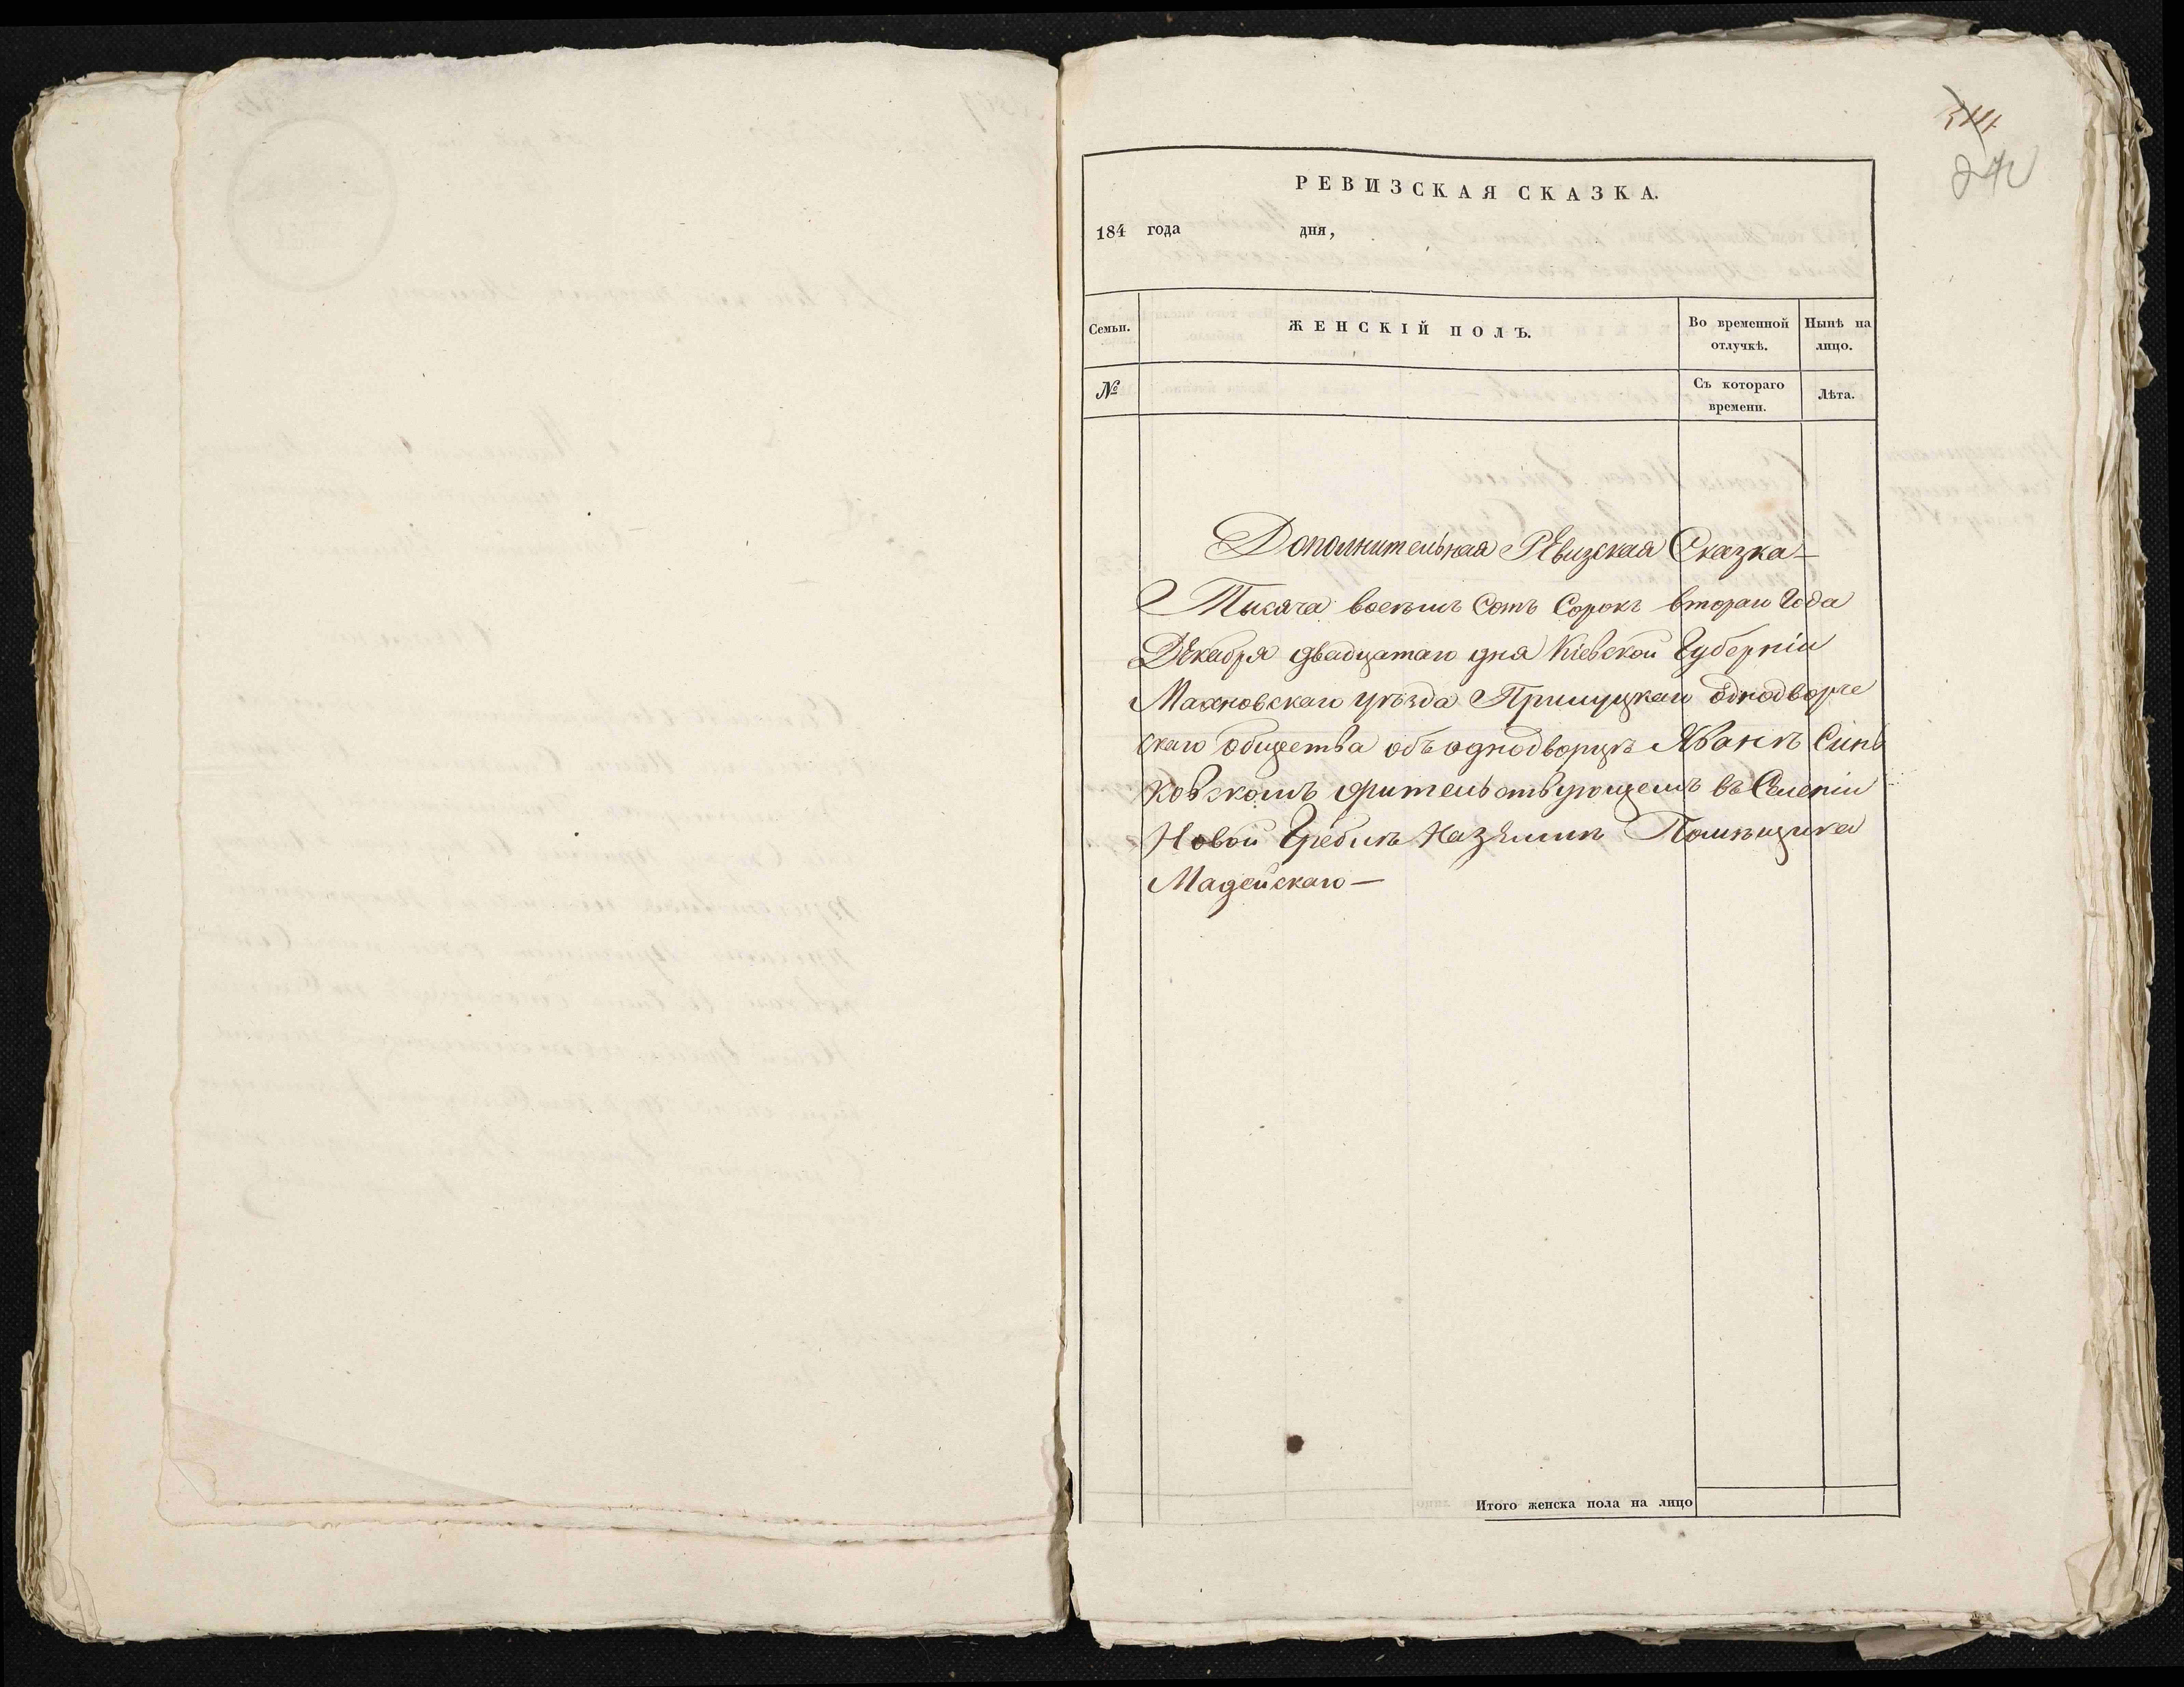 РЕВИЗСКАЯ СКАЗКА.
184 года дня,
Семьи.
ЖЕНСКІЙ ПОЛЪ.
Во временной отлучкѣ.
Нынѣ на лицо.
№
Съ котораго времени.
Лѣта.
Дополнительная Ревизская Сказка —
Тысяча восемь Сотъ Сорокъ втораго Года
Декабря двадцатаго дня Кіевской Губерніи
Махновскаго уѣзда Прилуцкаго однодворче
скаго общества объ однодворцѣ Иванѣ Синь
ковскомъ жительствующемъ въ Селеніи
Новой Греблѣ на землѣ Помѣщика
Мадейскаго —
Итого женска пола на лицо